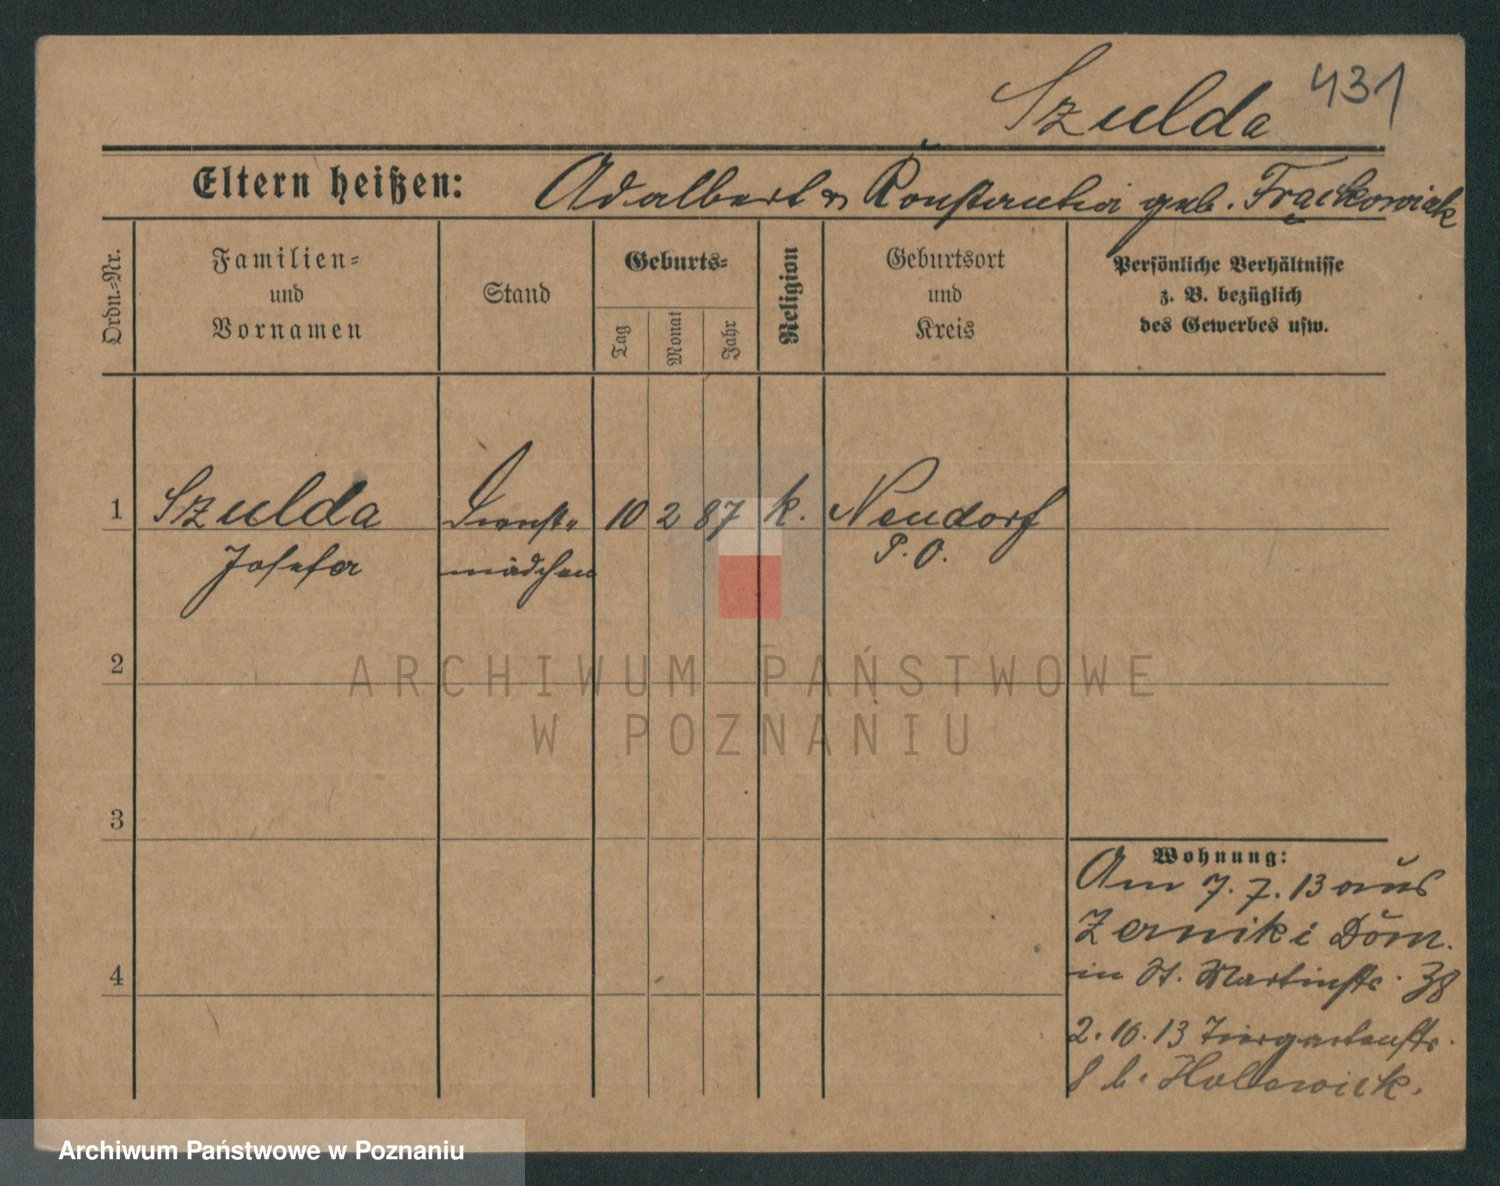 Szulda 431
Eltern heißen: Adalbert u Konstantia geb. Frąckowiak
Ordn.-Nr.
Familien-
und
Vornamen
Stand
Geburts-
Tag
Monat
Jahr
Religion
Geburtsort
und
Kreis
Persönliche Verhältnisse
z. B. bezüglich
des Gewerbes usw.
1 Szulda Dienst- 10 2 87 k. Neudorf
Josefa mädchen P. O.
2
3
4
Wohnung:
Am 7. 7. 13 aus
Zerniki Dom.
in St. Martinstr. 38
2. 10. 13 Tiergartenstr.
8 b.
ARCHIWUM PAŃSTWOWE
W POZNANIU
Archiwum Państwowe w Poznaniu